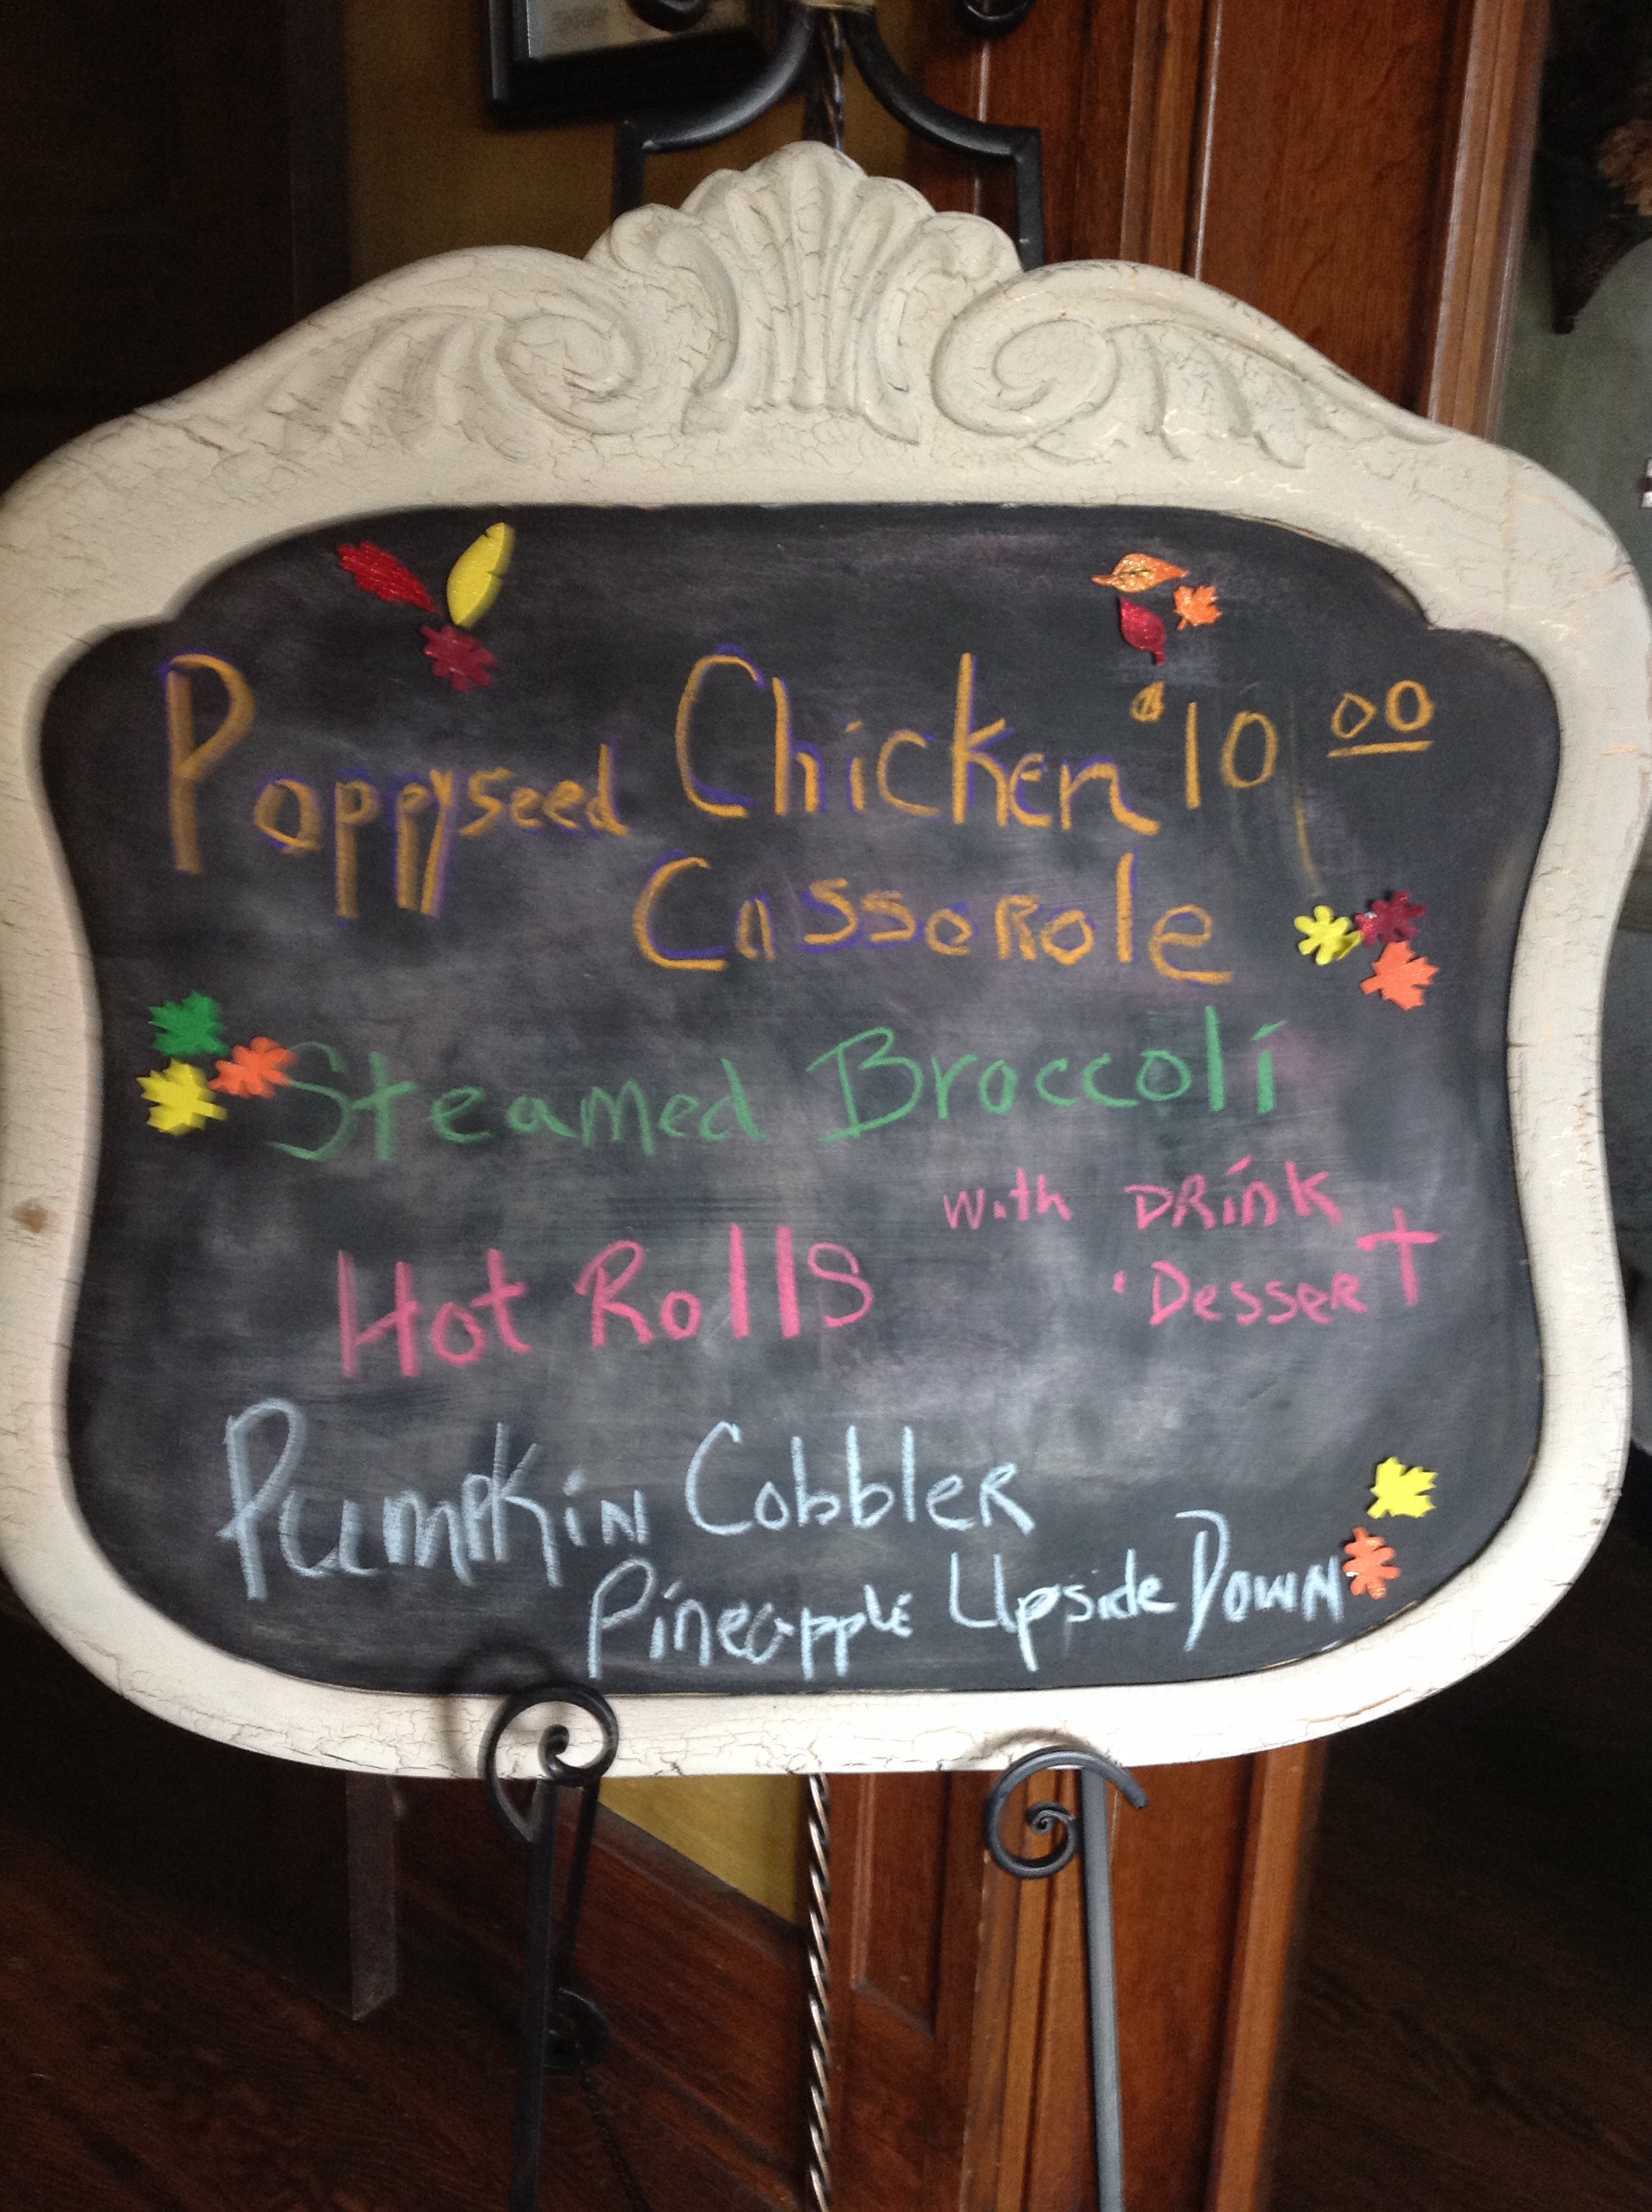 Poppyseed Chicken $10 00
Casserole
Steamed Broccoli
with Drink
Hot Rolls · Dessert
Pumpkin Cobbler
Pineapple Upside Down